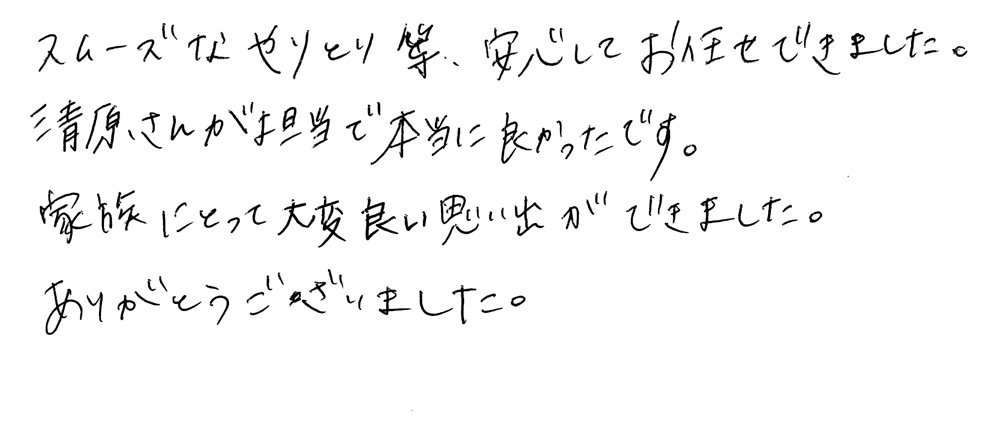 スムーズなやりとり等、安心してお任せできました。
清原さんが担当で本当に良かったです。
家族にとって大変良い思い出ができました。
ありがとうございました。